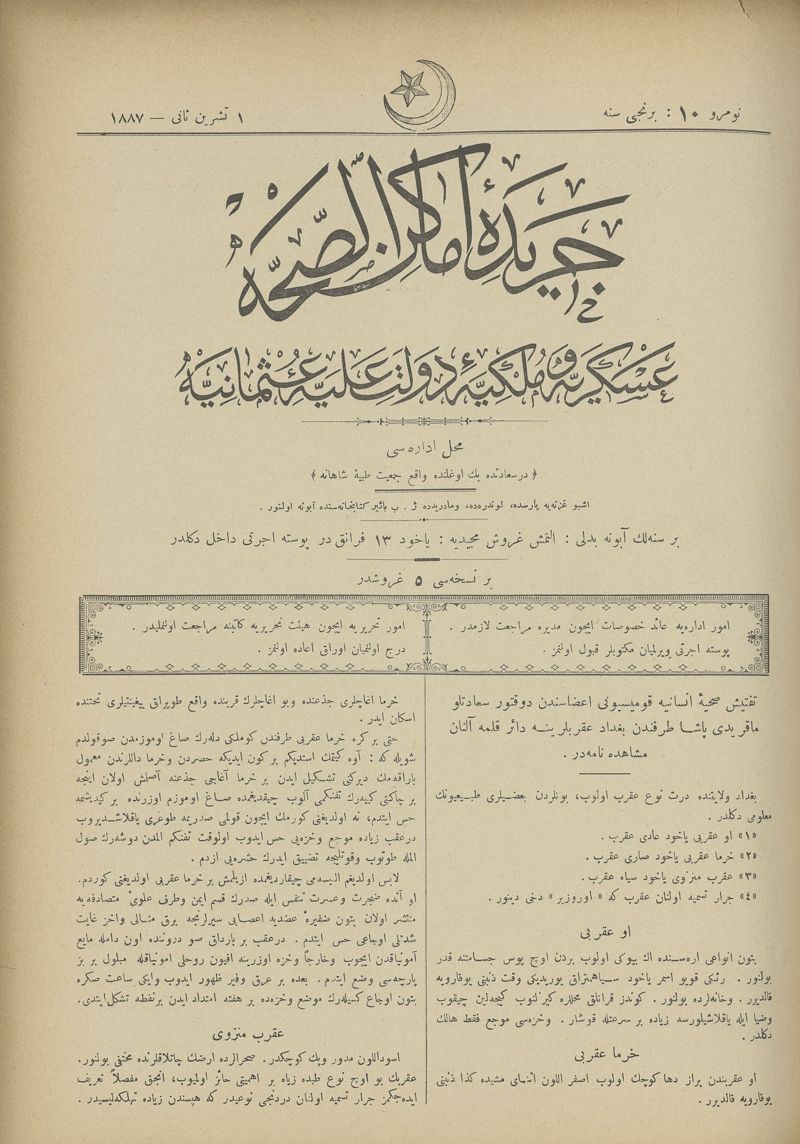 نومرو ١٠ : برنجی سنه
١ تشرین ثانی — ١٨٨٧
جریدهٔ اماكن الصحّه
عسكریه و ملكیهٔ دولت علیهٔ عثمانیه
محل اداره‌سی
﴿ درسعادتده بك اوغلنده واقع جمعیت طبیهٔ شاهانه ﴾
اشبو غزته‌یه پارسده، لوندره‌ده، ومادریدده ژ . ب بائیر كتابخانه‌سنده آبونه اولنور .
بر سنه‌لك آبونه بدلی : التمش غروش مجیدیه : یاخود ١٣ فرانق در پوسته اجرتی داخل دكلدر
بر نسخه‌سی ٥ غروشدر
امور اداره‌یه عائد خصوصات ایچون مدیره مراجعت لازمدر .
پوسته اجرتی ویرلمیان مكتوبلر قبول اولنمز .
امور تحریریه ایچون هیئت تحریریه كاتبنه مراجعت اولنملیدر .
درج اولنمیان اوراق اعاده اولنمز .
تفتیش صحیهٔ انسانیه قومیسیونی اعضاسندن دوقتور سعادتلو
ماقریدی پاشا طرفندن بغداد عقربلرینه دائر قلمه آلنان
مشاهده نامه‌در .
بغداد ولایتنده درت نوع عقرب اولوب، بونلردن بعضیلری طبیعیونك
معلومی دكلدر .
«١» او عقربی یاخود عادی عقرب .
«٢» خرما عقربی یاخود صاری عقرب .
«٣» عقرب منزوی یاخود سیاه عقرب .
«٤» جرار تسمیه اولنان عقرب كه « اوروزیر » دخی دینور .
او عقربی
بتون انواعی اره‌سنده اك بیوكی اولوب بردن اوچ پوس جسامتنه قدر
بولنور . رنكی قویو اسمر یاخود سیاهمتراق یوریدیكی وقت ذنبنی یوقارویه
قالدیرر . وخانه‌لرده بولنور . كوندز قراناق محللره كیزلنوب كیجه‌لین چیقوب
وضیا ایله یاقلاشیلورسه زیاده بر سرعتله قوشار . وخزه‌سی موجع فقط هالك
دكلدر .
خرما عقربی
او عقربندن براز دها كوچك اولوب اصفر اللون اثنای مشیده كذا ذنبنی
یوقارویه قالدیرر .
خرما اغاچلری جذعنده وبو اغاچلرك قربنده واقع طوپراق ییغینتیلری تحتنده
اسكان ایدر .
حتی بر كره خرما عقربی طرفندن كوملكی دله‌رك صاغ اوموزمدن صوقولدم
شویله كه : آوه كیتمك استدیكم بر كون ایدیكه حصردن وخرما داللرندن معمول
باراقه‌مك دیركنی تشكیل ایدن بر خرما آغاجی جذعنه آصلمش اولان اینجه
بر چاكتی كییه‌رك تفنكمی آلوب چیقدیغمده صاغ اوموزم اوزرنده بر كیدیشمه
حس ایتدم، نه اولدیغنی كورمك ایچون قولمی صدریمه طوغری یاقلاشدیروب
درعقب زیاده موجع وخزه‌یی حس ایدوب اولوقت تفنكم المدن دوشه‌رك صول
المله طوتوب وقوتلیجه تضییق ایدرك حشره‌یی ازدم .
لابس اولدیغم البسه‌می چیقاردیغمده ازیلمش بر خرما عقربی اولدیغنی كوردم.
او آنده ضجرت وعسرت تنفس ایله صدرك قسم ایمن وطرف علوئ متصادفه‌یه
منتشر اولان بتون ضفیرهٔ عضدیه اعصابی سیرلرنجه برق مثالی واخز غایت
شدتلی اوجاعی حس ایتدم . درعقب بر بارداق صو دروننده اون دامله مایع
آمونیاقدن ایچوب وخارجاً وخزه اوزرینه افیون روحلی امونیاقله مبلول بر بز
پارچه‌سی وضع ایتدم . بعده بر عرق وفیر ظهور ایدوب وایكی ساعت صكره
بتون اوجاع كسیله‌رك موضع وخزه‌ده بر هفته امتداد ایدن برنفطه تشكل‌ایتدی.
عقرب منزوی
اسوداللون مدور وپك كوچكدر. صحرالرده ارضك چاتلاقلرنده مختفی بولنور.
عقربك بو اوچ نوع طبده زیاه بر اهمیتی حائز اولمیوب، انجق مفصلاً تعریف
ایده‌جكمز جرار تسمیه اولنان دردنجی نوعیدر كه هپسندن زیاده تهلكه‌لیسیدر.